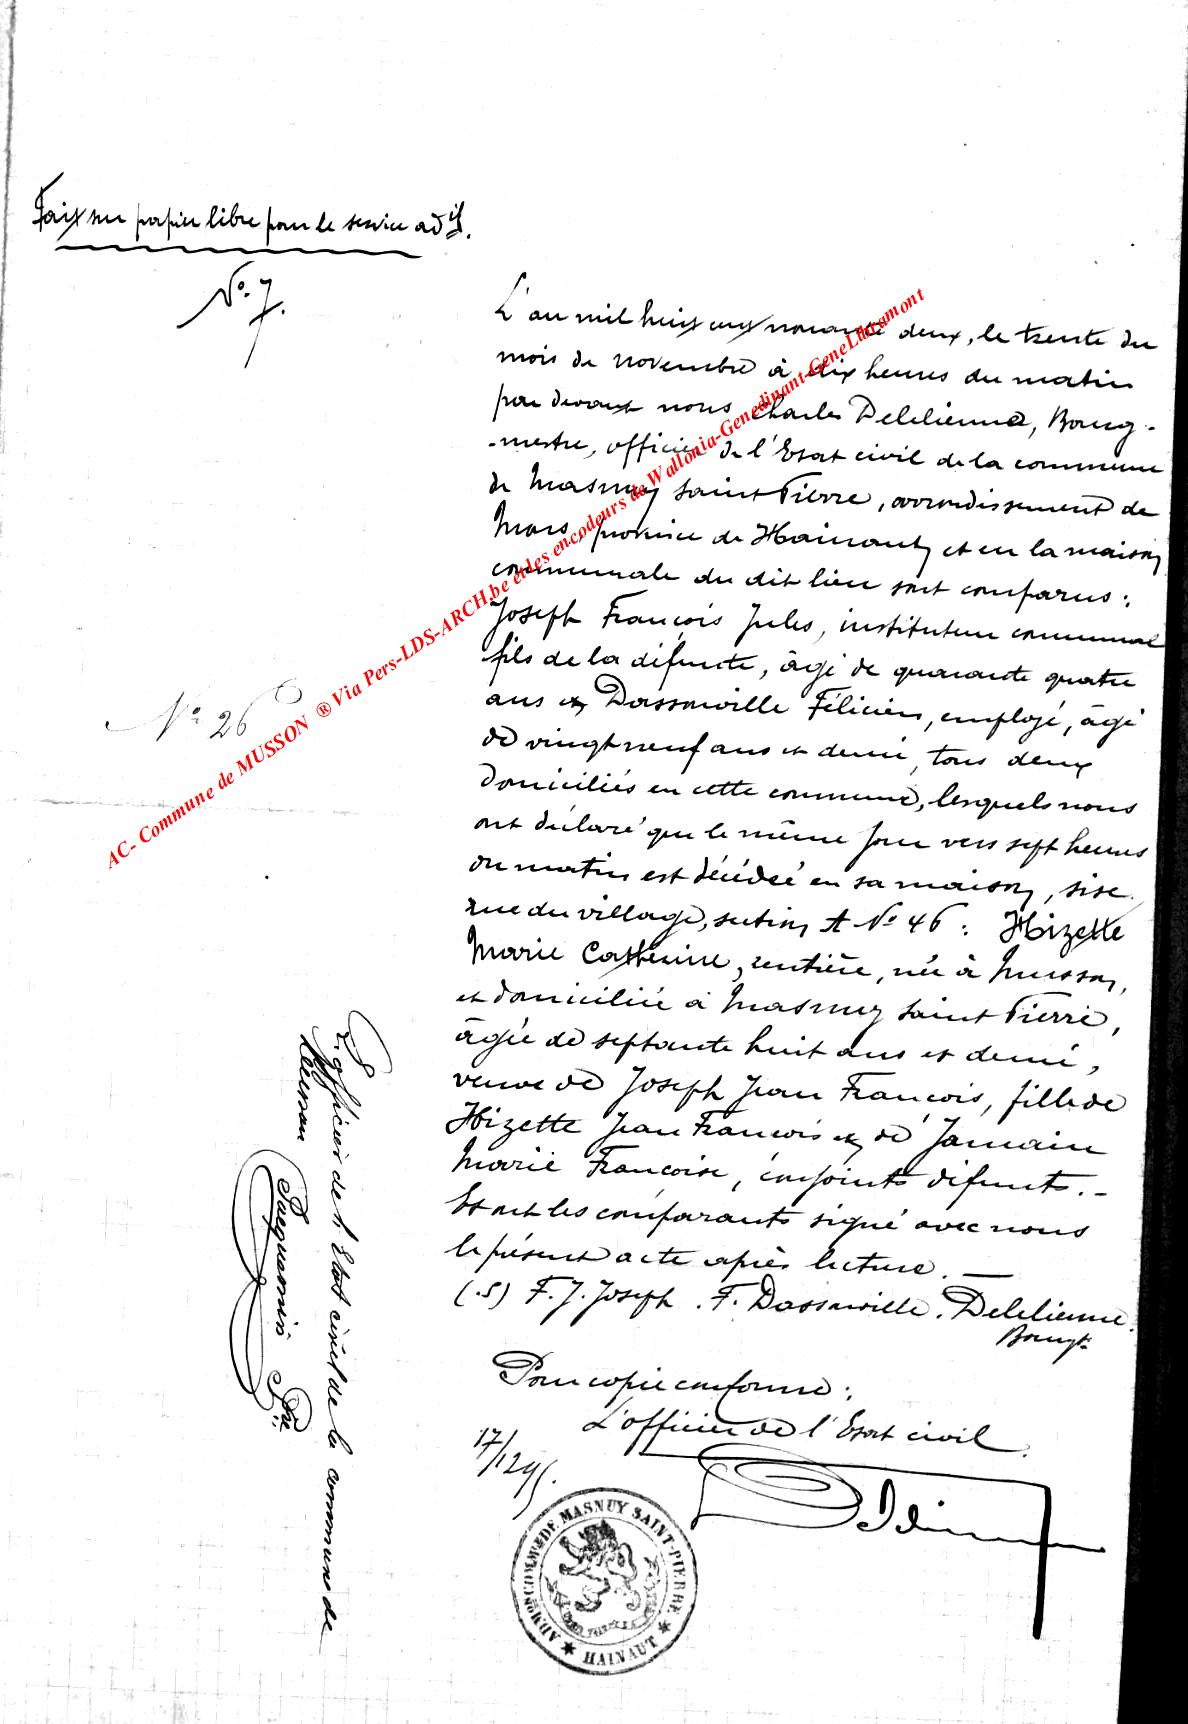 Fait sur papier libre pour le service adif.
No. 7.
L'an mil huit cent nonante deux, le trente du
mois de novembre à dix heures du matin
par devant nous Charles Delelienne, Bourg-
-mestre, officier de l'Etat civil de la commune
de Masnuy Saint Pierre, arrondissement de
Mons, province de Hainaut, et en la maison
communale du dit lieu sont comparus :
Joseph François Jules, instituteur communal
fils de la défunte, âgé de quarante quatre
ans et Dassonville Félicien, employé, âgé
de vingt neuf ans et demi, tous deux
domiciliés en cette commune, lesquels nous
ont déclaré que le même jour vers sept heures
du matin est décédée en sa maison, sise
rue du village, section A No 46 : Hizette
Marie Catherine, rentière, née à Musson,
et domiciliée à Masnuy Saint Pierre,
âgée de septante huit ans et demi,
veuve de Joseph Jean François, fille de
Hizette Jean François et de Jamain
Marie Françoise, conjoints défunts. -
Et ont les comparants signé avec nous
le présent acte après lecture. —
(.S) F. J. Joseph . F. Dassonville . Delelienne.
Bourgt.
Pour copie conforme :
L'officier de l'Etat civil
17/12 95.
No 26
L'officier de l'Etat civil de la commune de
Musson
Jacquemin
AC- Commune de MUSSON ® Via Pers-LDS-ARCH.be et les encodeurs de Wallonia-Genedinant-GeneLibramont
ADMON COMMLE DE MASNUY SAINT-PIERRE
★ HAINAUT ★